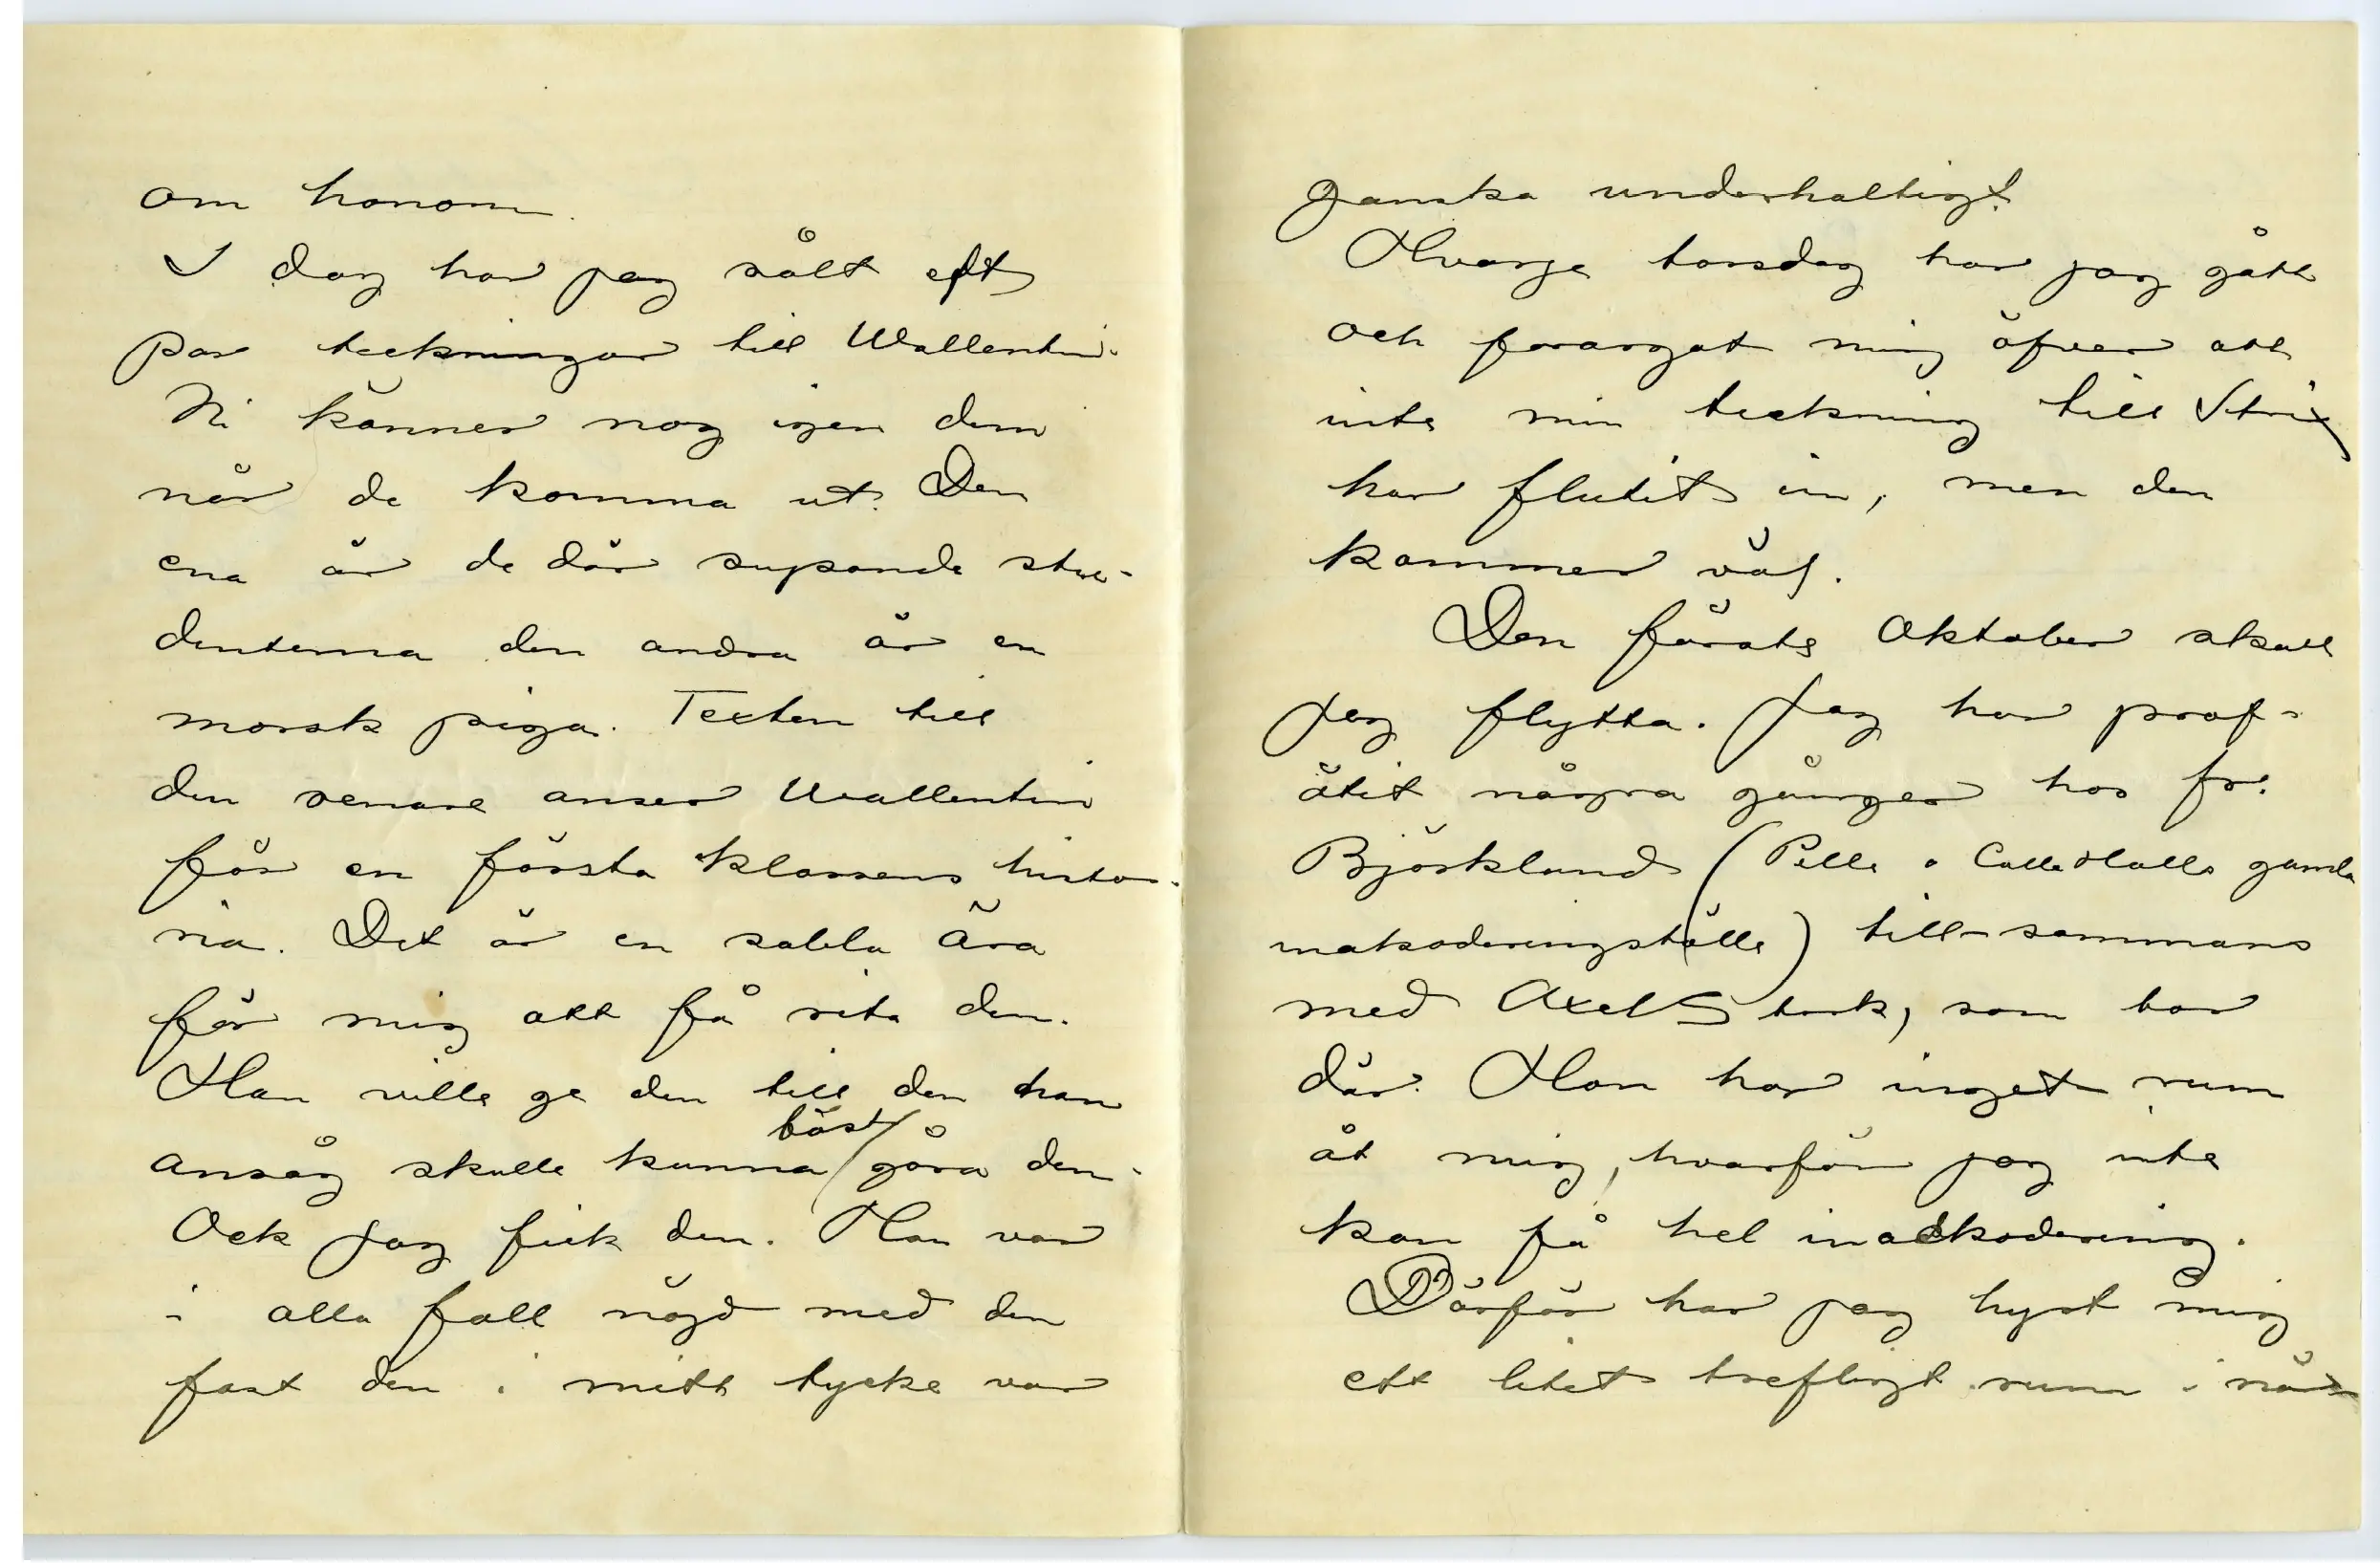 om honom.
I dag har jag sålt ett
par teckningar till Wallentin.
Ni känner nog igen dem
när de komma ut. Den
ena är de där supande stu-
denterna den andra är en
morsk piga. Texten till
den senare anser Wallentin
för en första klassens histo-
ria. Det är en sabla ära
för mig att få rita den.
Han ville ge den till den han
ansåg skulle kunna bäst göra den.
Ock jag fick den. Han var
i alla fall nöjd med den
fast den i mitt tycke var
ganska underhaltigt.
Hvarje torsdag har jag gått
och förargat mig öfver att
inte min teckning till Strix
har flutit in, men den
kommer väl.
Den första Oktober skall
jag flytta. Jag har prof-
ätit några gånger hos fr.
Björklund (Pelle o Calle Halls gamla
matackorderingställe) till-sammans
med Axel Stark, som bor
där. Hon har inget rum
åt mig, hvarför jag inte
kan få hel inackordering.
Därför har jag hyrt mig
ett litet trefligt rum i när-